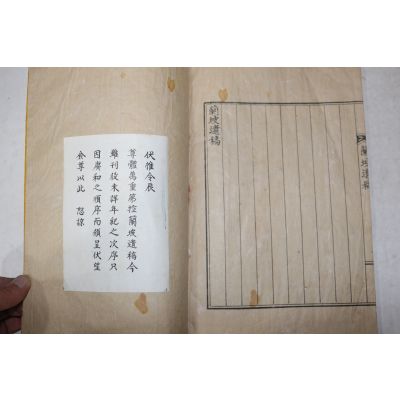 蘭坡遺稿
蘭坡遺稿
伏惟令辰
尊體萬重第控蘭坡遺稿今
雖刊役未詳年紀之次序只
因賡和之順序而頒呈伏望
僉尊以此 恕諒